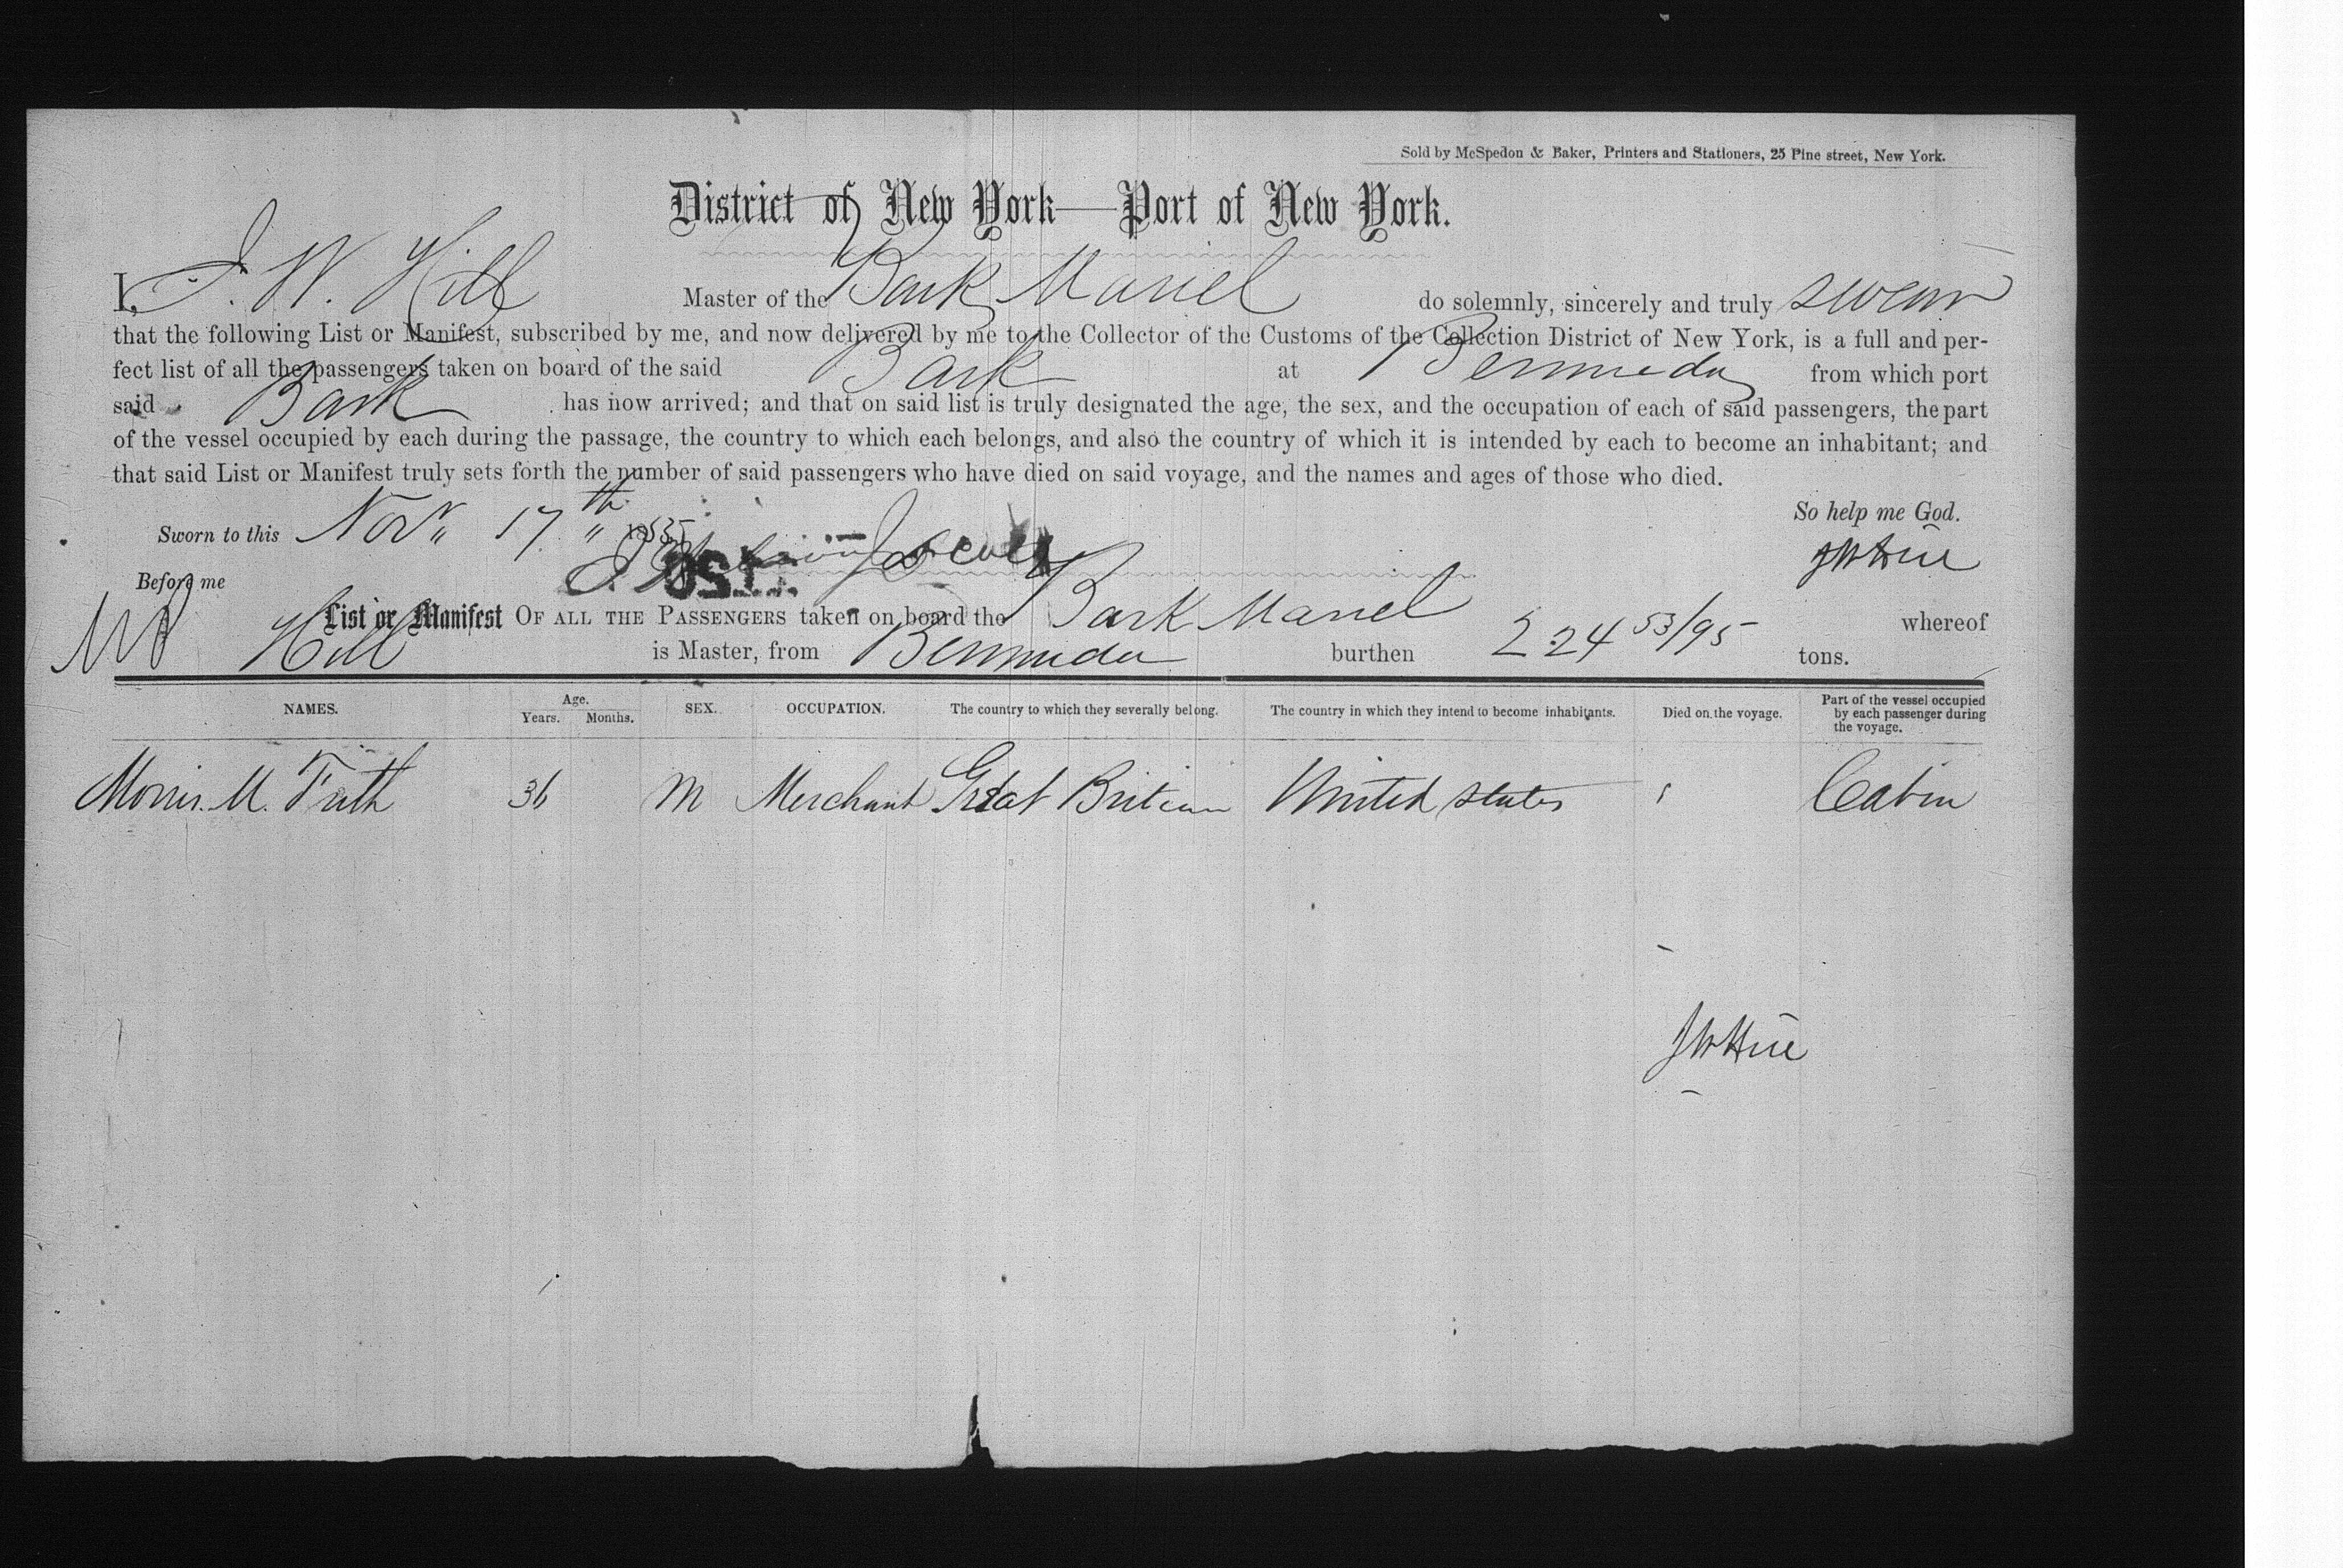 Sold by McSpedon & Baker, Printers and Stationers, 25 Pine street, New York.
District of New York—Port of New York.
I, J. W. Hill Master of the Bark Mariel do solemnly, sincerely and truly swear
that the following List or Manifest, subscribed by me, and now delivered by me to the Collector of the Customs of the Collection District of New York, is a full and per-
fect list of all the passengers taken on board of the said Bark at Bermuda from which port
said Bark has now arrived; and that on said list is truly designated the age, the sex, and the occupation of each of said passengers, the part
of the vessel occupied by each during the passage, the country to which each belongs, and also the country of which it is intended by each to become an inhabitant; and
that said List or Manifest truly sets forth the number of said passengers who have died on said voyage, and the names and ages of those who died.
So help me God.
Sworn to this Novr 17th 1855
J W Hill
Before me
List or Manifest OF ALL THE PASSENGERS taken on board the Bark Mariel whereof
Hill is Master, from Bermuda burthen 224 53/95 tons.
NAMES. Age. Years. Months. SEX. OCCUPATION. The country to which they severally belong. The country in which they intend to become inhabitants. Died on the voyage. Part of the vessel occupied by each passenger during the voyage.
Morris M. Frith 36 M Merchant Great Britain United States Cabin
J W Hill